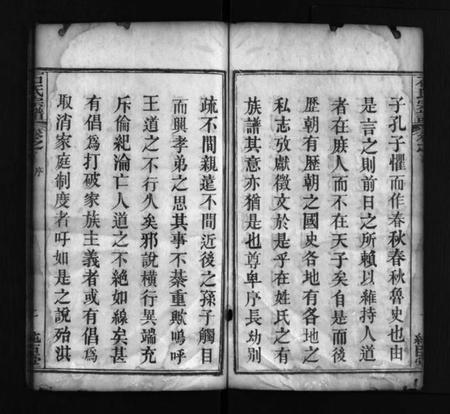 子孔子懼而作春秋春秋魯史也由
是言之則前日之所賴以維持人道
者在庶人而不在天子矣自是而後
歷朝有歷朝之國史各地有各地之
私志攷獻徵文於是乎在姓氏之有
族譜其意亦猶是也尊卑序長幼別
疏不間親遠不間近後之孫子觸目
而興孝弟之思其事不綦重歟嗚呼
王道之不行久矣邪說橫行異端充
斥倫紀淪亡人道之不絕如線矣甚
有倡爲打破家族主義者或有倡爲
取消家庭制度者吁如是之說殆洪
石氏宗譜 卷之 序